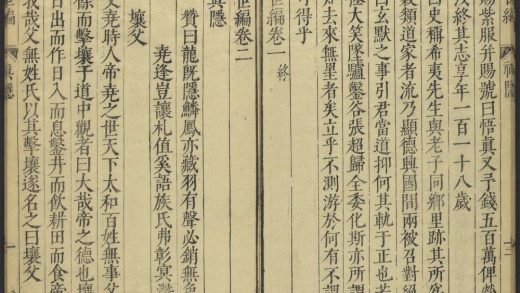 神隱
賜紫服并賜號曰悟真又予錢五百萬俾
終其志享年一百一十八歲
曰史稱希夷先生與老子同鄉里跡其所
穀類道家者流乃顯德興國間兩被召對
玄默之事引君當道抑何其軌于正也若
極大笑墜驢鑿谷張超歸全委化斯亦所謂
知去來無罣者矣立乎不測游於何有不謂
可得乎
世編卷一 終
世編卷二
真隱
贊曰龍既隱鱗鳳亦藏羽有聲必銷無
堯逢豈讓札值奚語族氏弗彰冥
壤父
父堯時人帝堯之世天下太和百姓無事
餘而擊壤于道中觀者曰大哉帝之德也壤
日出而作日入而息鑿井而飲耕田而食帝
我哉父無姓氏以其擊壤遂名之曰壤父
世編 真隱 一